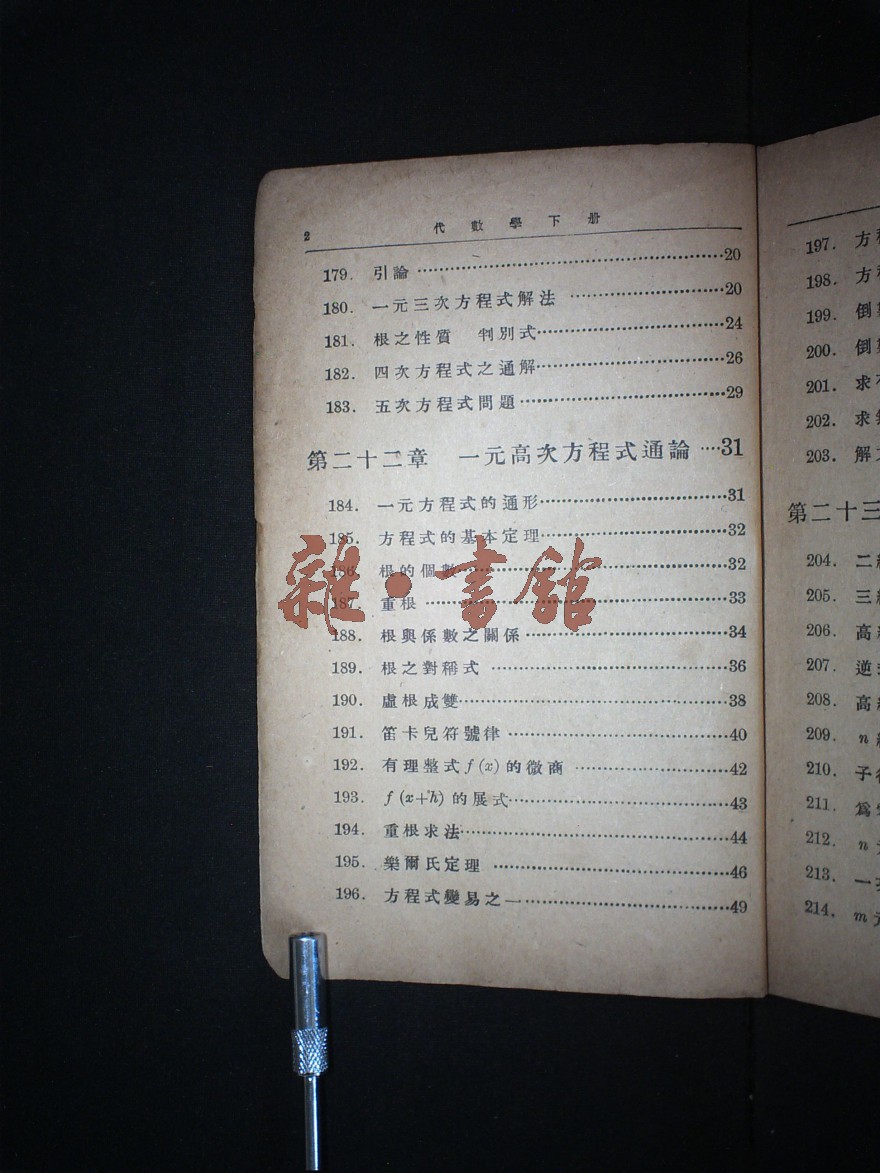 2 代數學下册
179. 引論 20
180. 一元三次方程式解法 20
181. 根之性質 判別式 24
182. 四次方程式之通解 26
183. 五次方程式問題 29
第二十二章 一元高次方程式通論 31
184. 一元方程式的通形 31
185. 方程式的基本定理 32
186. 根的個數 32
187. 重根 33
188. 根與係數之關係 34
189. 根之對稱式 36
190. 虛根成雙 38
191. 笛卡兒符號律 40
192. 有理整式 f (x) 的微商 42
193. f (x+h) 的展式 43
194. 重根求法 44
195. 樂爾氏定理 46
196. 方程式變易之一 49
雜·書館
197. 方
198. 方
199. 倒
200. 倒
201. 求
202. 求
203. 解
第二十三
204. 二
205. 三
206. 高
207. 逆
208. 高
209. n
210. 子
211. 爲
212. n
213. 一
214. m元